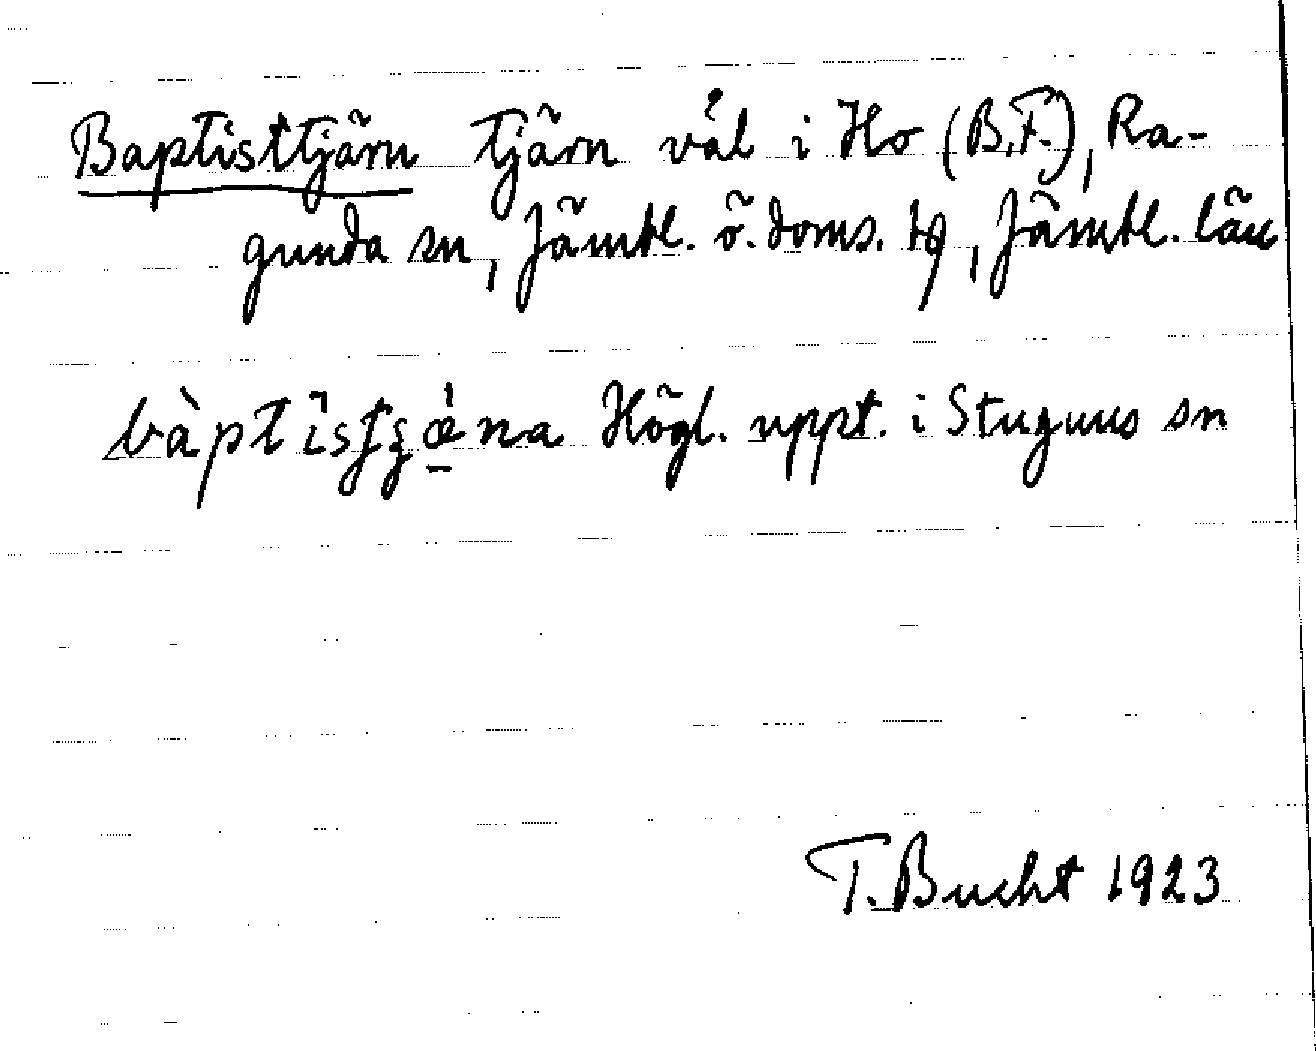 Baptisttjärn tjärn väl i Ho (B.F.), Ra-
gunda sn, Jämtl. ö. doms. tg, Jämtl. län
Högl. uppt. i Stuguns sn
T. Bucht 1923